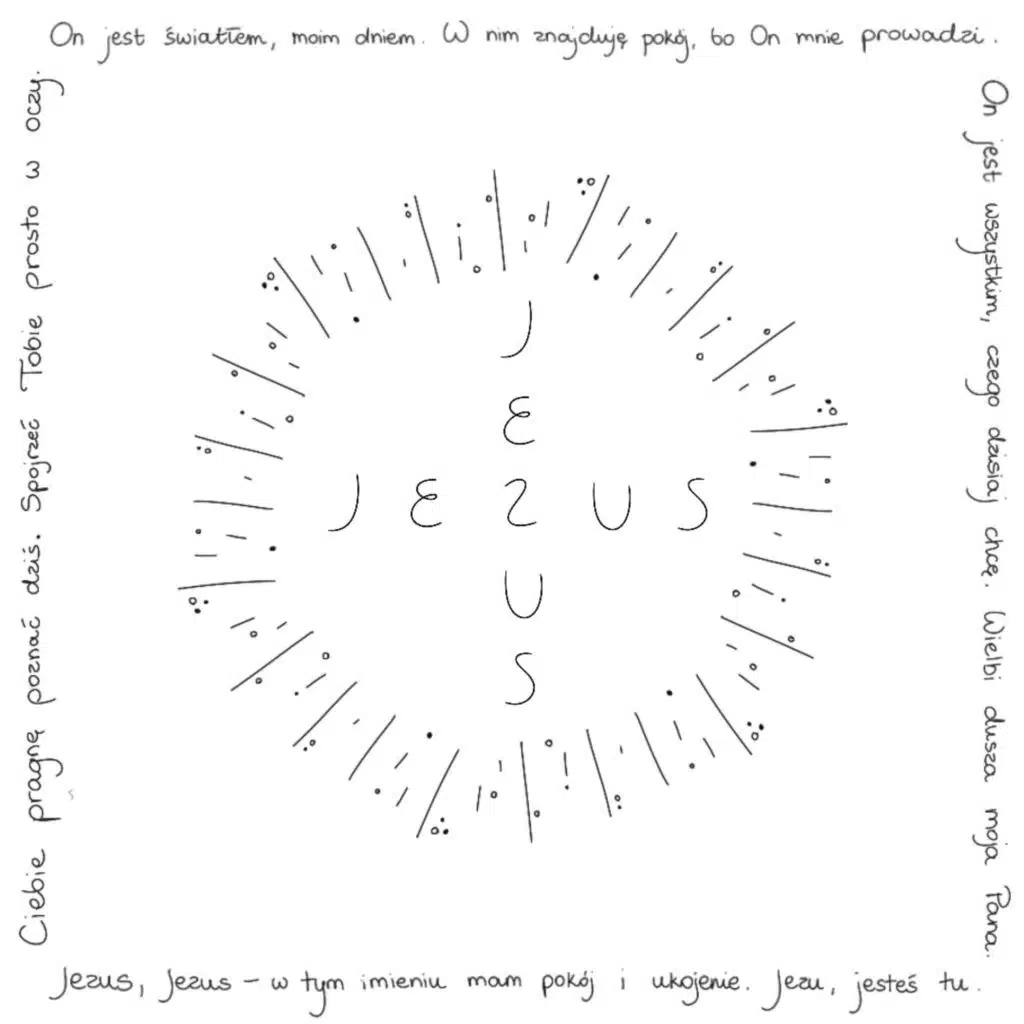 On jest światłem, moim dniem. W nim znajduję pokój, bo On mnie prowadzi.
On jest wszystkim, czego dzisiaj chcę. Wielbi dusza moja Pana.
Jezus, Jezus – w tym imieniu mam pokój i ukojenie. Jezu, jesteś tu.
Ciebie pragnę poznać dziś. Spojrzeć Tobie prosto w oczy.
J
E
JEZUS
U
S